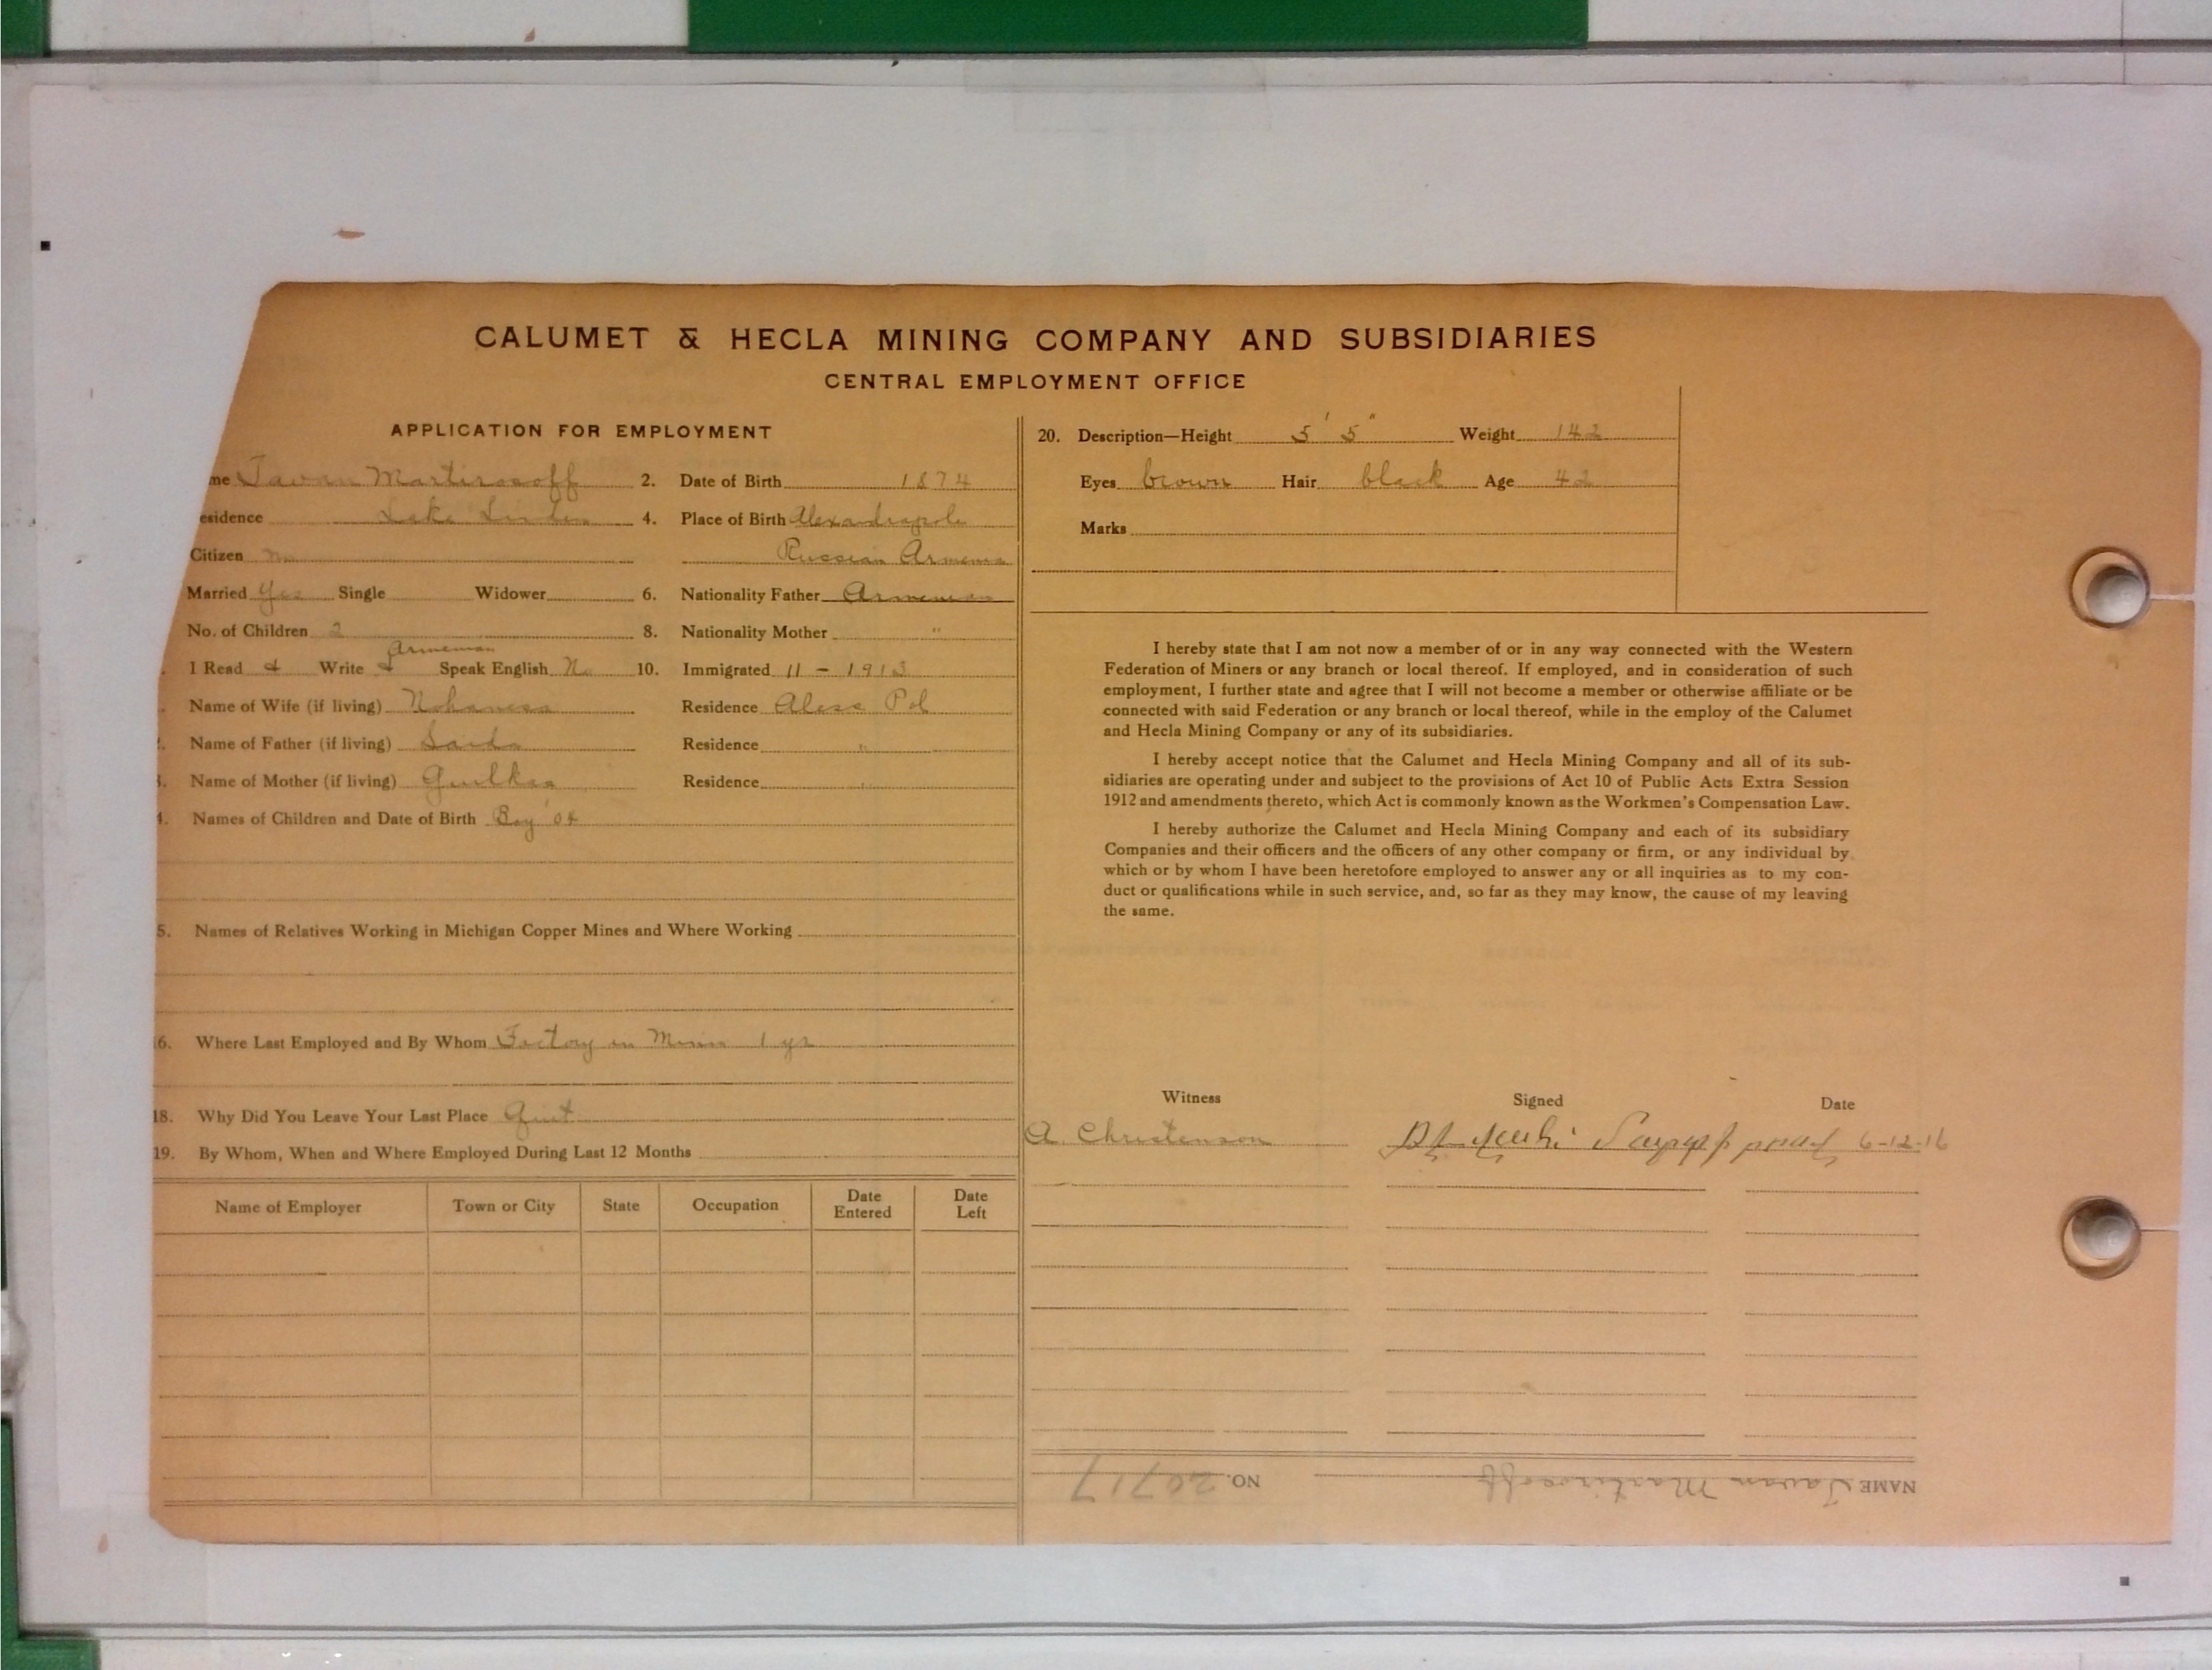 CALUMET & HECLA MINING COMPANY AND SUBSIDIARIES
CENTRAL EMPLOYMENT OFFICE
APPLICATION FOR EMPLOYMENT
me Tavan Martirosoff 2. Date of Birth 1874
esidence Lake Linden 4. Place of Birth Alexandrapole
Citizen no Russian Armenia
Married Yes Single Widower 6. Nationality Father Armenian
No. of Children 2 8. Nationality Mother "
Armenian
I Read & Write & Speak English No 10. Immigrated 11 - 1913
Name of Wife (if living) Nohaness Residence Aless Pol
Name of Father (if living) Saida Residence "
3. Name of Mother (if living) Residence "
4. Names of Children and Date of Birth Boy '04
5. Names of Relatives Working in Michigan Copper Mines and Where Working
16. Where Last Employed and By Whom Factory in Minn 1 yr
18. Why Did You Leave Your Last Place Quit
19. By Whom, When and Where Employed During Last 12 Months
Name of Employer Town or City State Occupation Date Entered Date Left
20. Description—Height 5' 5" Weight 142
Eyes brown Hair black Age 42
Marks
I hereby state that I am not now a member of or in any way connected with the Western
Federation of Miners or any branch or local thereof. If employed, and in consideration of such
employment, I further state and agree that I will not become a member or otherwise affiliate or be
connected with said Federation or any branch or local thereof, while in the employ of the Calumet
and Hecla Mining Company or any of its subsidiaries.
I hereby accept notice that the Calumet and Hecla Mining Company and all of its sub-
sidiaries are operating under and subject to the provisions of Act 10 of Public Acts Extra Session
1912 and amendments thereto, which Act is commonly known as the Workmen's Compensation Law.
I hereby authorize the Calumet and Hecla Mining Company and each of its subsidiary
Companies and their officers and the officers of any other company or firm, or any individual by
which or by whom I have been heretofore employed to answer any or all inquiries as to my con-
duct or qualifications while in such service, and, so far as they may know, the cause of my leaving
the same.
Witness Signed Date
A. Christenson 6-12-16
NAME Tavan Martirosoff NO. 20717